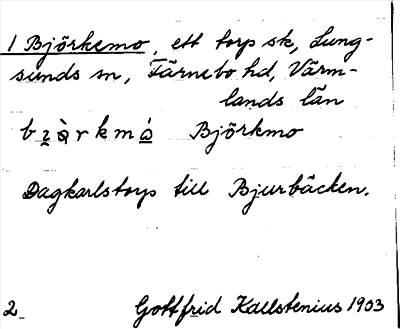 1 Björkemo, ett torp sk, Lung-
sunds sn, Färnebo hd, Värm-
lands län
bɪ̯àrkmå̀ Björkmo
Dagkarlstorp till Bjurbäcken.
2 Gottfrid Kallstenius 1903